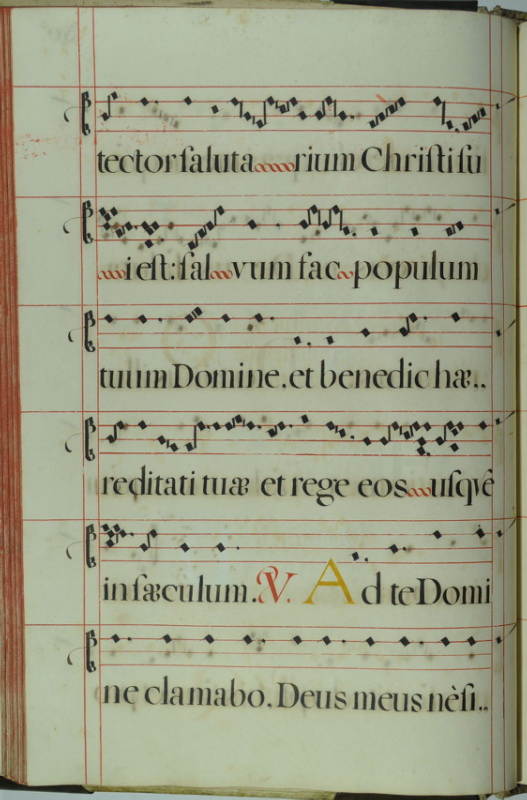 tector saluta rium Christi su
i est: sal vum fac populum
tuum Domine. et benedic hæ..
reditati tuæ et rege eos usquè
in sæculum. V. Ad te Domi
ne clamabo. Deus meus nè si..